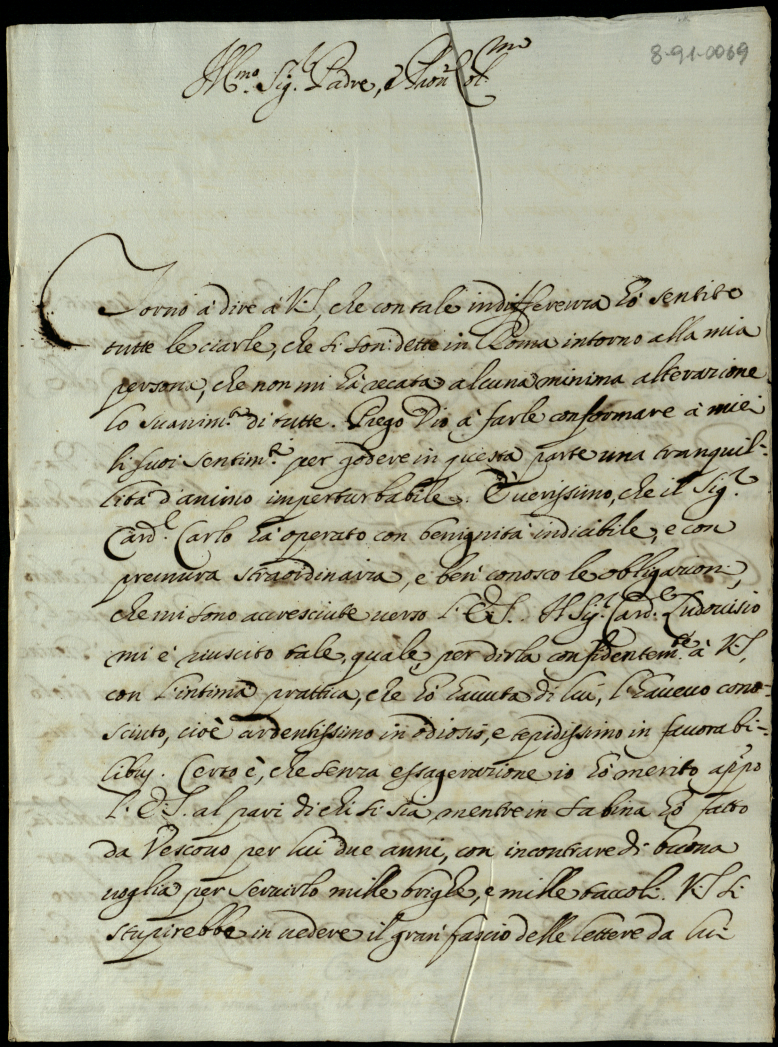 8-91-0069
Ill.mo Sig.r Padre, e Pron Col.mo
Torno à dire à V.S. che con tale indifferenza hò sentite
tutte le ciarle, che si son' dette in Roma intorno alla mia
persona, che non mi hà recata alcuna minima alterazione
lo suanim.to di tutte. Prego Dio à farle conformare à miei
li suoi sentim.ti per godere in questa parte una tranquil-
lità d'animo imperturbabile. È uerissimo, che il Sig.r
Card.l Carlo hà operato con benignità indicibile, e con
premura straordinaria, e ben' conosco le obligazion,
che mi sono accresciute uerso l'E.S. Il Sig.r Card.l Ludouisio
mi è riuscito tale, quale, per dirla confidentem.te à V.S.
con l'intima prattica, che hò hauuta di lui, l'haueuo cono-
sciuto, cioè ardentissimo in odiosis, e tepidissimo in fauorabi-
libus. Certo è, che senza essagerazione io hò merito appo
l'E.S. al pari di chi si sia, mentre in Sabina hò fatto
da Vescouo per lui due anni, con incontrare di buona
uoglia per seruirlo mille brighe, e mille taccoli. V.S. si
stupirebbe in uedere il gran' fascio delle lettere da lui